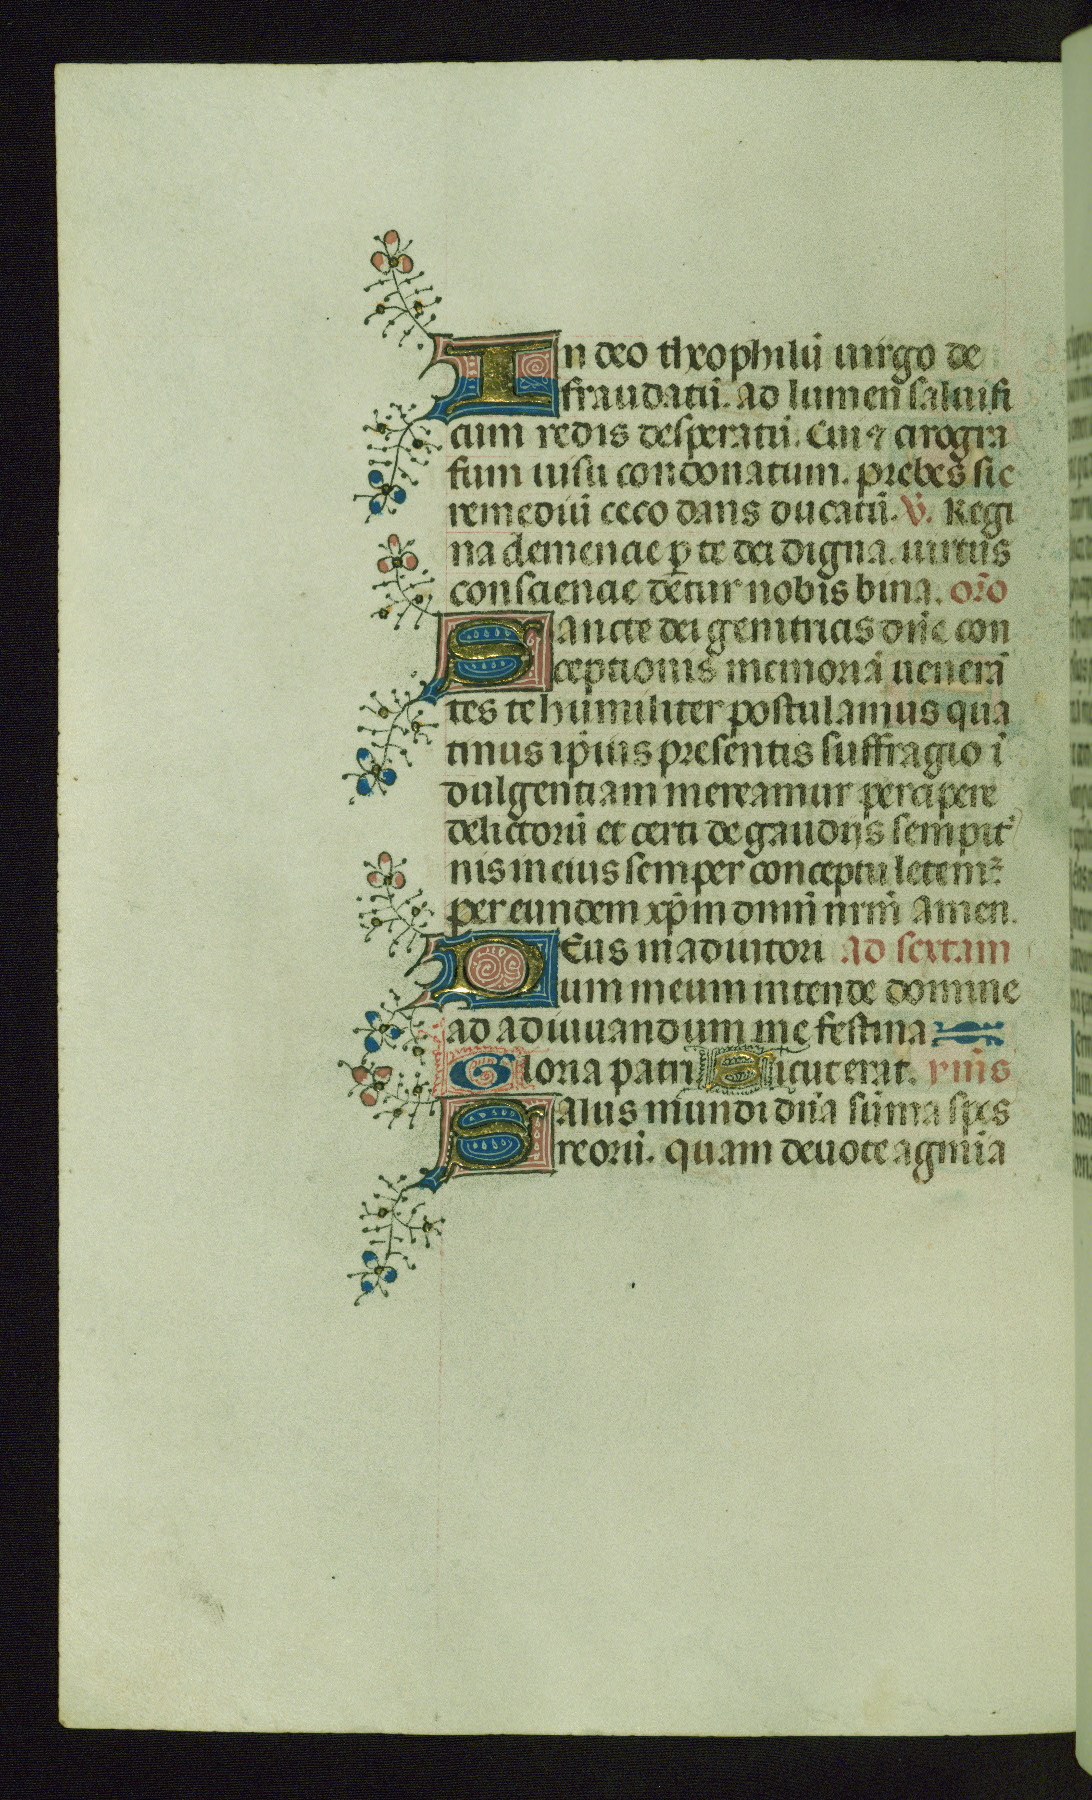 In deo theophilū uirgo de
fraudatū. ad lumen̄ saluifi
cum redis desperatū. Cui⁊ cirogra
fum uisu condonatum. prebes sic
remediū ceco dans ducatū. V̄. Regi
na clemencie p̱ te dei digna. uirtus
consciencie det̄ur nobis bina. or̄o
Sancte dei genitricis dn̄e con
ceptionis memoriā uenerā
tes te humiliter postulamus qua
tinus ip̄ius presentis suffragio ī
dulgentiam mereamur percipere
delictorū et certi de gaudijs sempit᾽
nis in eius semper conceptu letem᷑
per eundem xp̄m dominū nr̄m Amen.
DEus in adiutori ad sextam
um meum intende domine
ad adiuuandum me festina
Gloria patri Sicut erat. ym̄s
Salus mundi dn̄a sūma spes
reorū. quam deuote agmīa